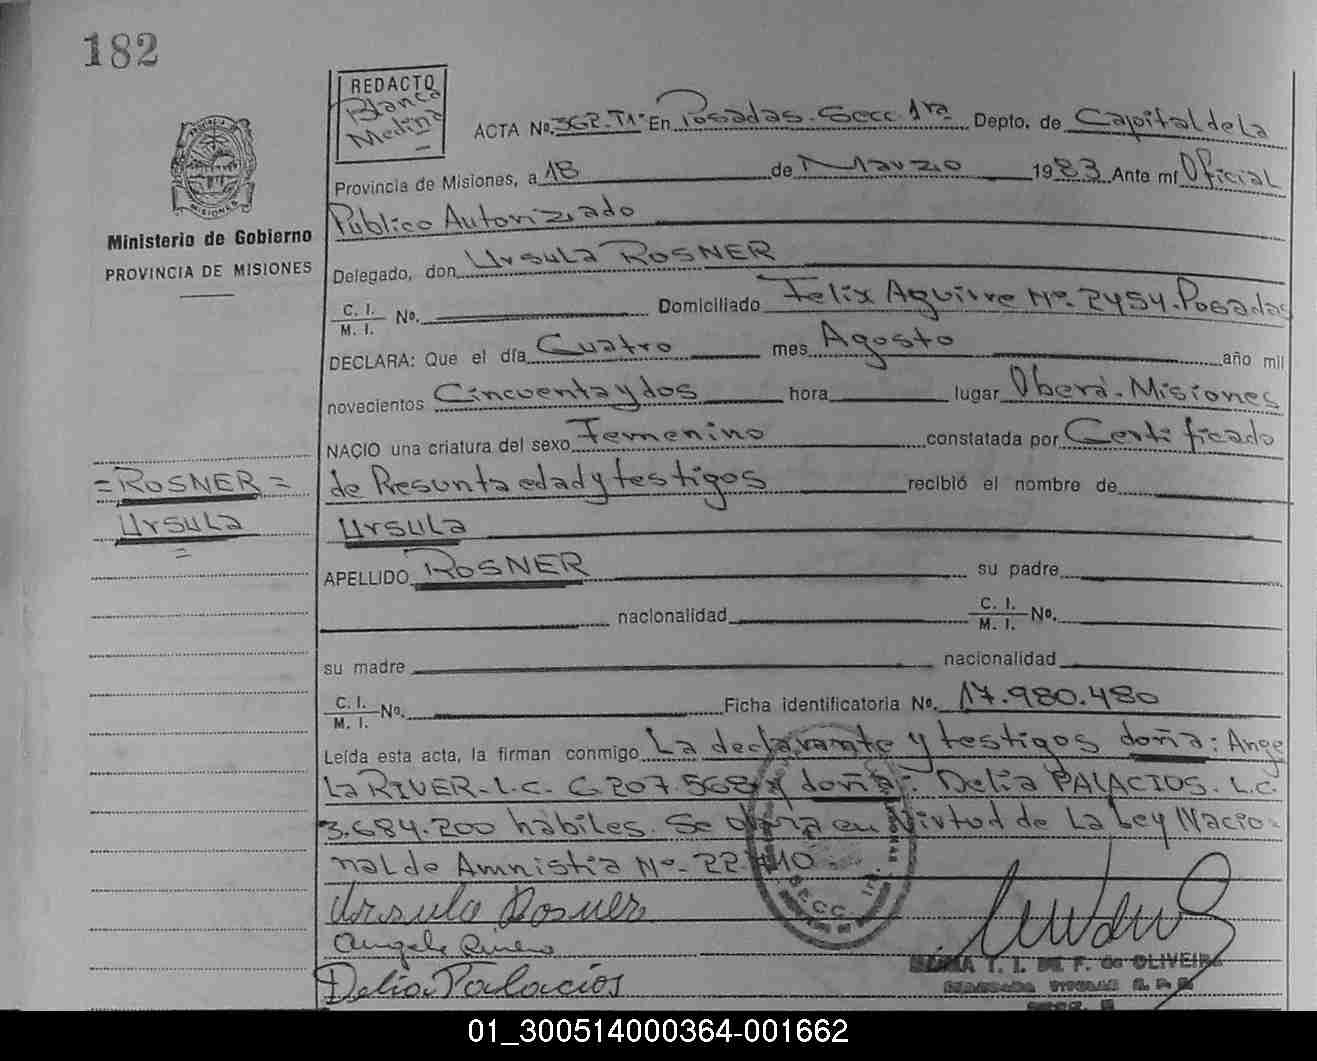 182
REDACTO
Blanca
Medina
ACTA No. 362. T1º En Posadas. Secc. 1ra Depto. de Capital de la
Provincia de Misiones, a 18 de Marzo 1983 Ante mí Oficial
Público Autorizado
Ministerio de Gobierno
PROVINCIA DE MISIONES
Delegado, don Ursula ROSNER
C. I.
M. I. No. Domiciliado Felix Aguirre Nº. 2454. Posadas
DECLARA: Que el día Cuatro mes Agosto año mil
novecientos Cincuenta y dos hora lugar Oberá. Misiones
NACIO una criatura del sexo Femenino constatada por Certificado
= ROSNER =
de Presunta edad y testigos recibió el nombre de
Ursula
Ursula
=
APELLIDO ROSNER su padre
nacionalidad C. I.
M. I. No.
su madre nacionalidad
C. I.
M. I. No. Ficha identificatoria No. 17.980.480
Leída esta acta, la firman conmigo La declarante y testigos doña: Ange
la RIVER. L.C. 6.207.568 y doña: Delia PALACIOS. L.C.
3.684.200 hábiles. Se obra en Virtud de La Ley Nacio-
nal de Amnistia Nº. 22.410.
SECC. 1ra.
Ursula Rosner
Angela
Delia Palacios
MARIA T. I. DE F. de OLIVEIRA
01_300514000364-001662